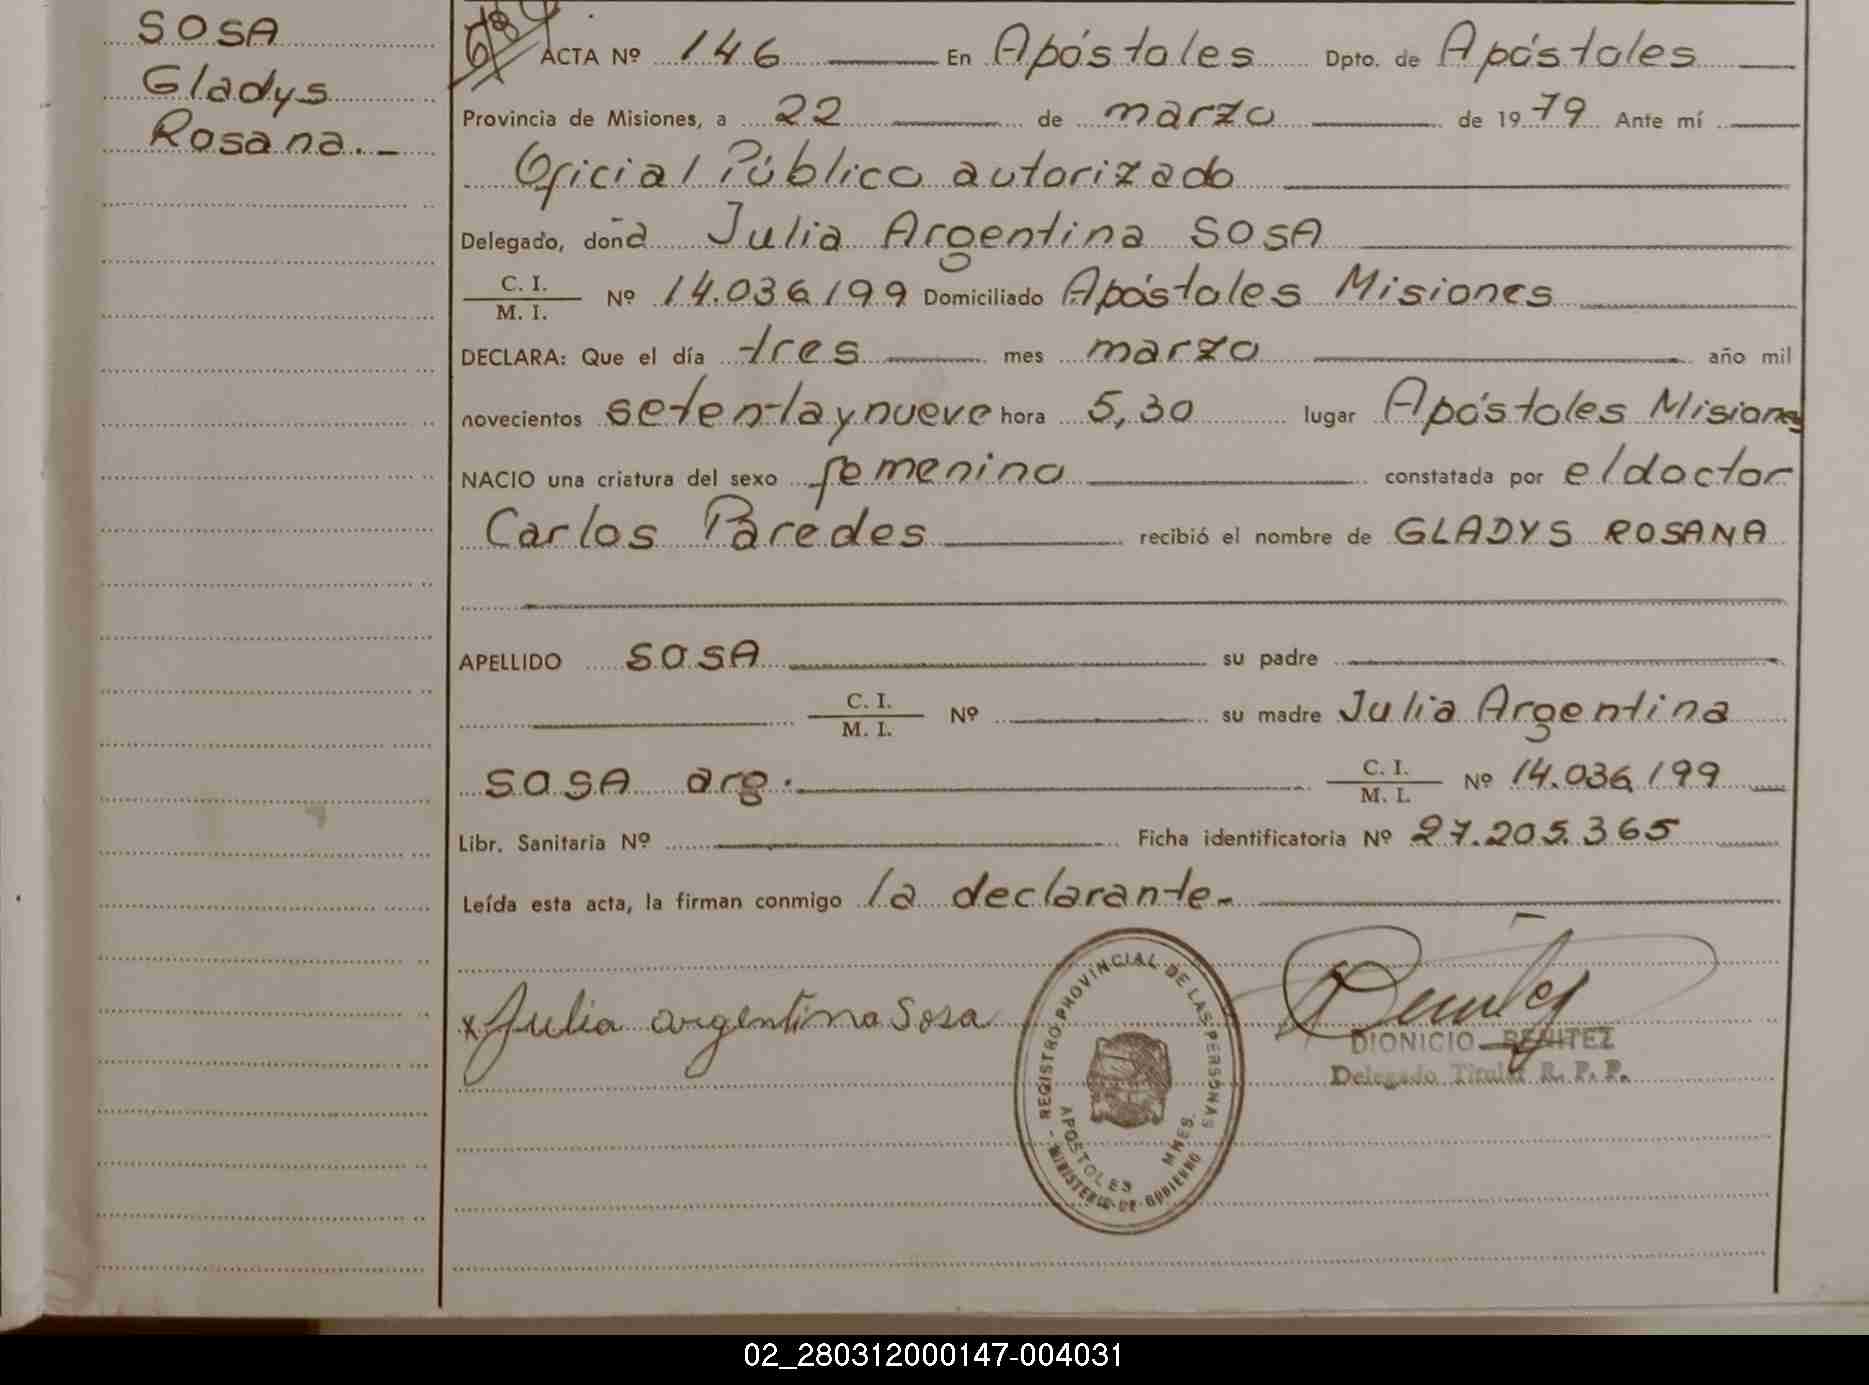 SOSA
Gladys
Rosana.-
ACTA Nº 146 En Apóstoles Dpto. de Apóstoles
Provincia de Misiones, a 22 de marzo de 1979 Ante mí
Oficial Público autorizado
Delegado, doña Julia Argentina SOSA
C. I.
M. I. Nº 14.036.199 Domiciliado Apóstoles Misiones
DECLARA: Que el día tres mes marzo año mil
novecientos setenta y nueve hora 5,30 lugar Apóstoles Misiones
NACIO una criatura del sexo femenino constatada por el doctor
Carlos Paredes recibió el nombre de GLADYS ROSANA
APELLIDO SOSA su padre
C. I.
M. I. Nº su madre Julia Argentina
SOSA arg. C. I.
M. I. Nº 14.036.199
Libr. Sanitaria Nº Ficha identificatoria Nº 27.205.365
Leída esta acta, la firman conmigo la declarante.-
x Julia argentina Sosa
REGISTRO PROVINCIAL DE LAS PERSONAS
APOSTOLES MNES.
- MINISTERIO DE GOBIERNO -
Benitez
DIONICIO BENITEZ
Delegado Titular R. P. P.
02_280312000147-004031